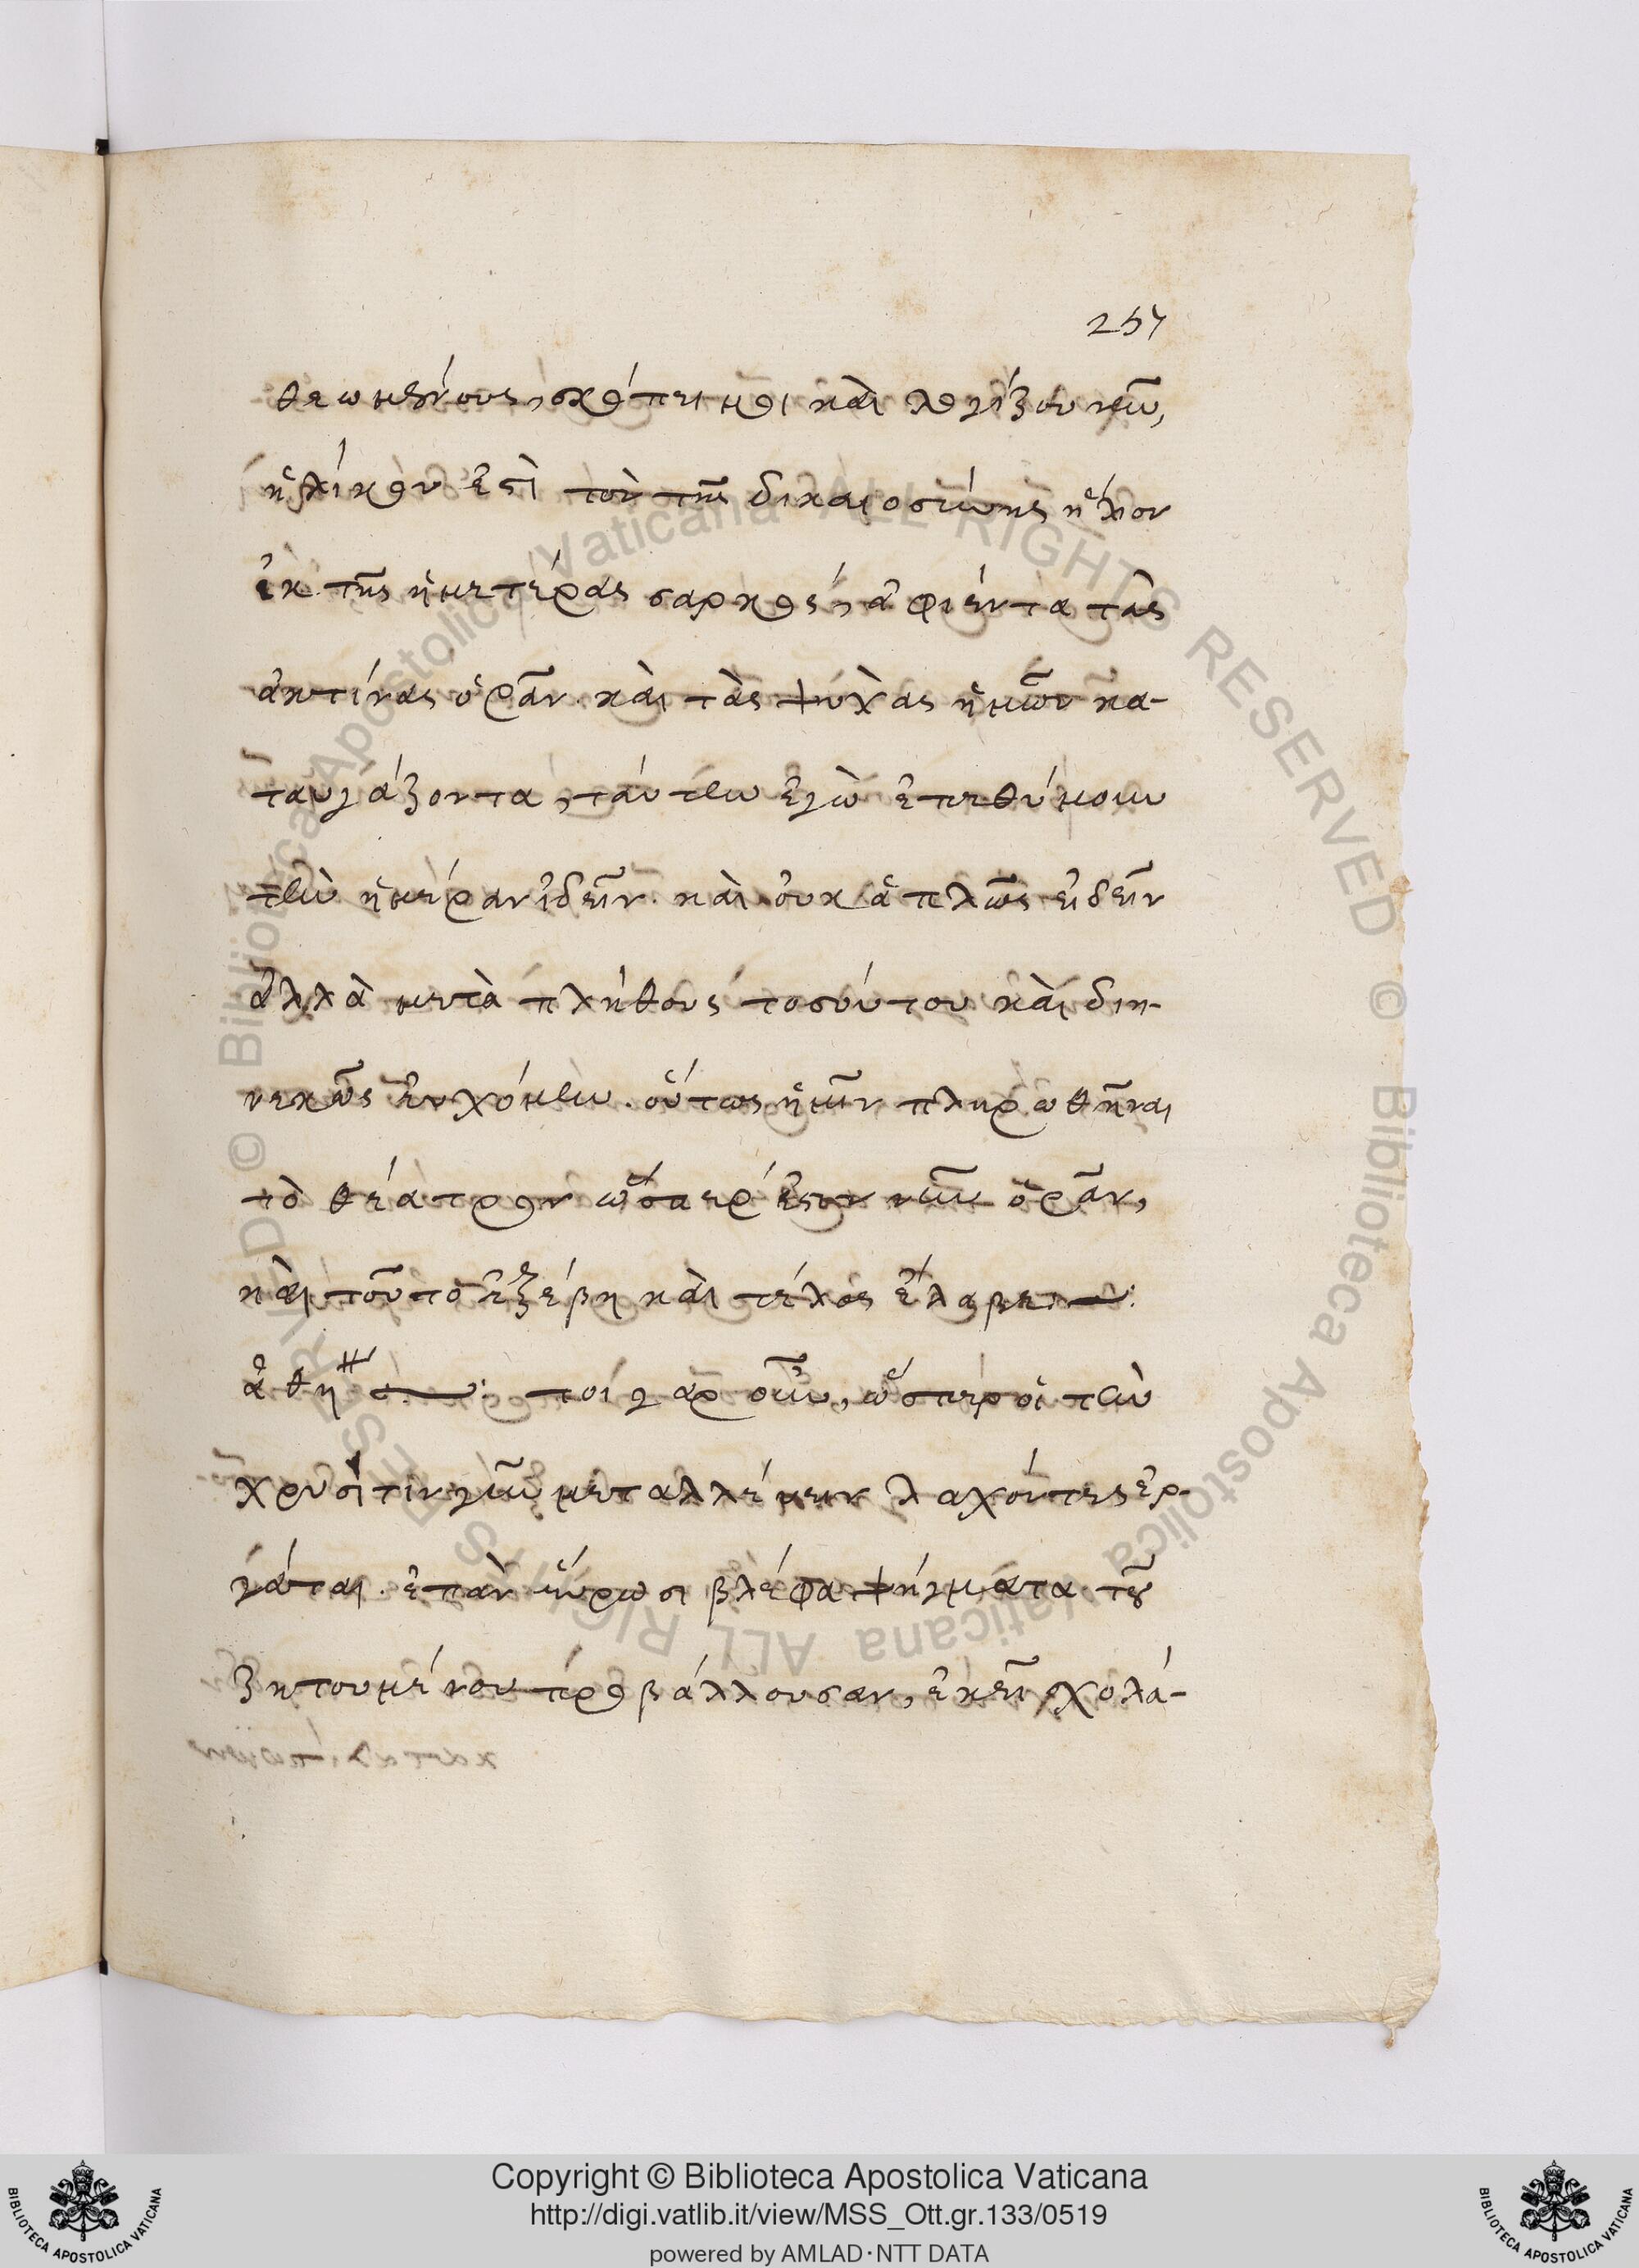 257
θεωμένους, σκόπει μοι καὶ λογίζου νῦν,
ἡλίκον ἐστὶ τὸν τῆς δικαιοσύνης ἥλιον
ἐκ τῆς ἡμετέρας σαρκός, ἀφιέντα τὰς
ἀκτίνας ὁρᾶν. καὶ τὰς ψυχὰς ἡμῶν κα-
ταυγάζοντα, ταύτην ἐγὼ ἐπεθύμουν
τὴν ἡμέραν ἰδεῖν. καὶ οὐκ ἁπλῶς ἰδεῖν
ἀλλὰ μετὰ πλήθους τοσούτου καὶ διη-
νεκῶς εὐχόμην. οὕτως ἡμῖν πληρωθῆναι
τὸ θέατρον ὥσπερ ἔστιν νῦν ὁρᾶν,
καὶ τοῦτο ἐξέβη καὶ τέλος ἔλαβε:
τοι γαροῦν, ὥσπερ οἱ τὴν
χρυσῖτιν γῆν μεταλλεύειν λαχόντες ἐρ-
γάται. ἐπὰν εὕρωσι βλέφα ψήγματα τοῦ
ζητουμένου προβάλλουσαν, ἐκεῖ σχολά-
Copyright © Biblioteca Apostolica Vaticana
http://digi.vatlib.it/view/MSS_Ott.gr.133/0519
powered by AMLAD·NTT DATA
BIBLIOTECA APOSTOLICA VATICANA
BIBLIOTECA APOSTOLICA VATICANA